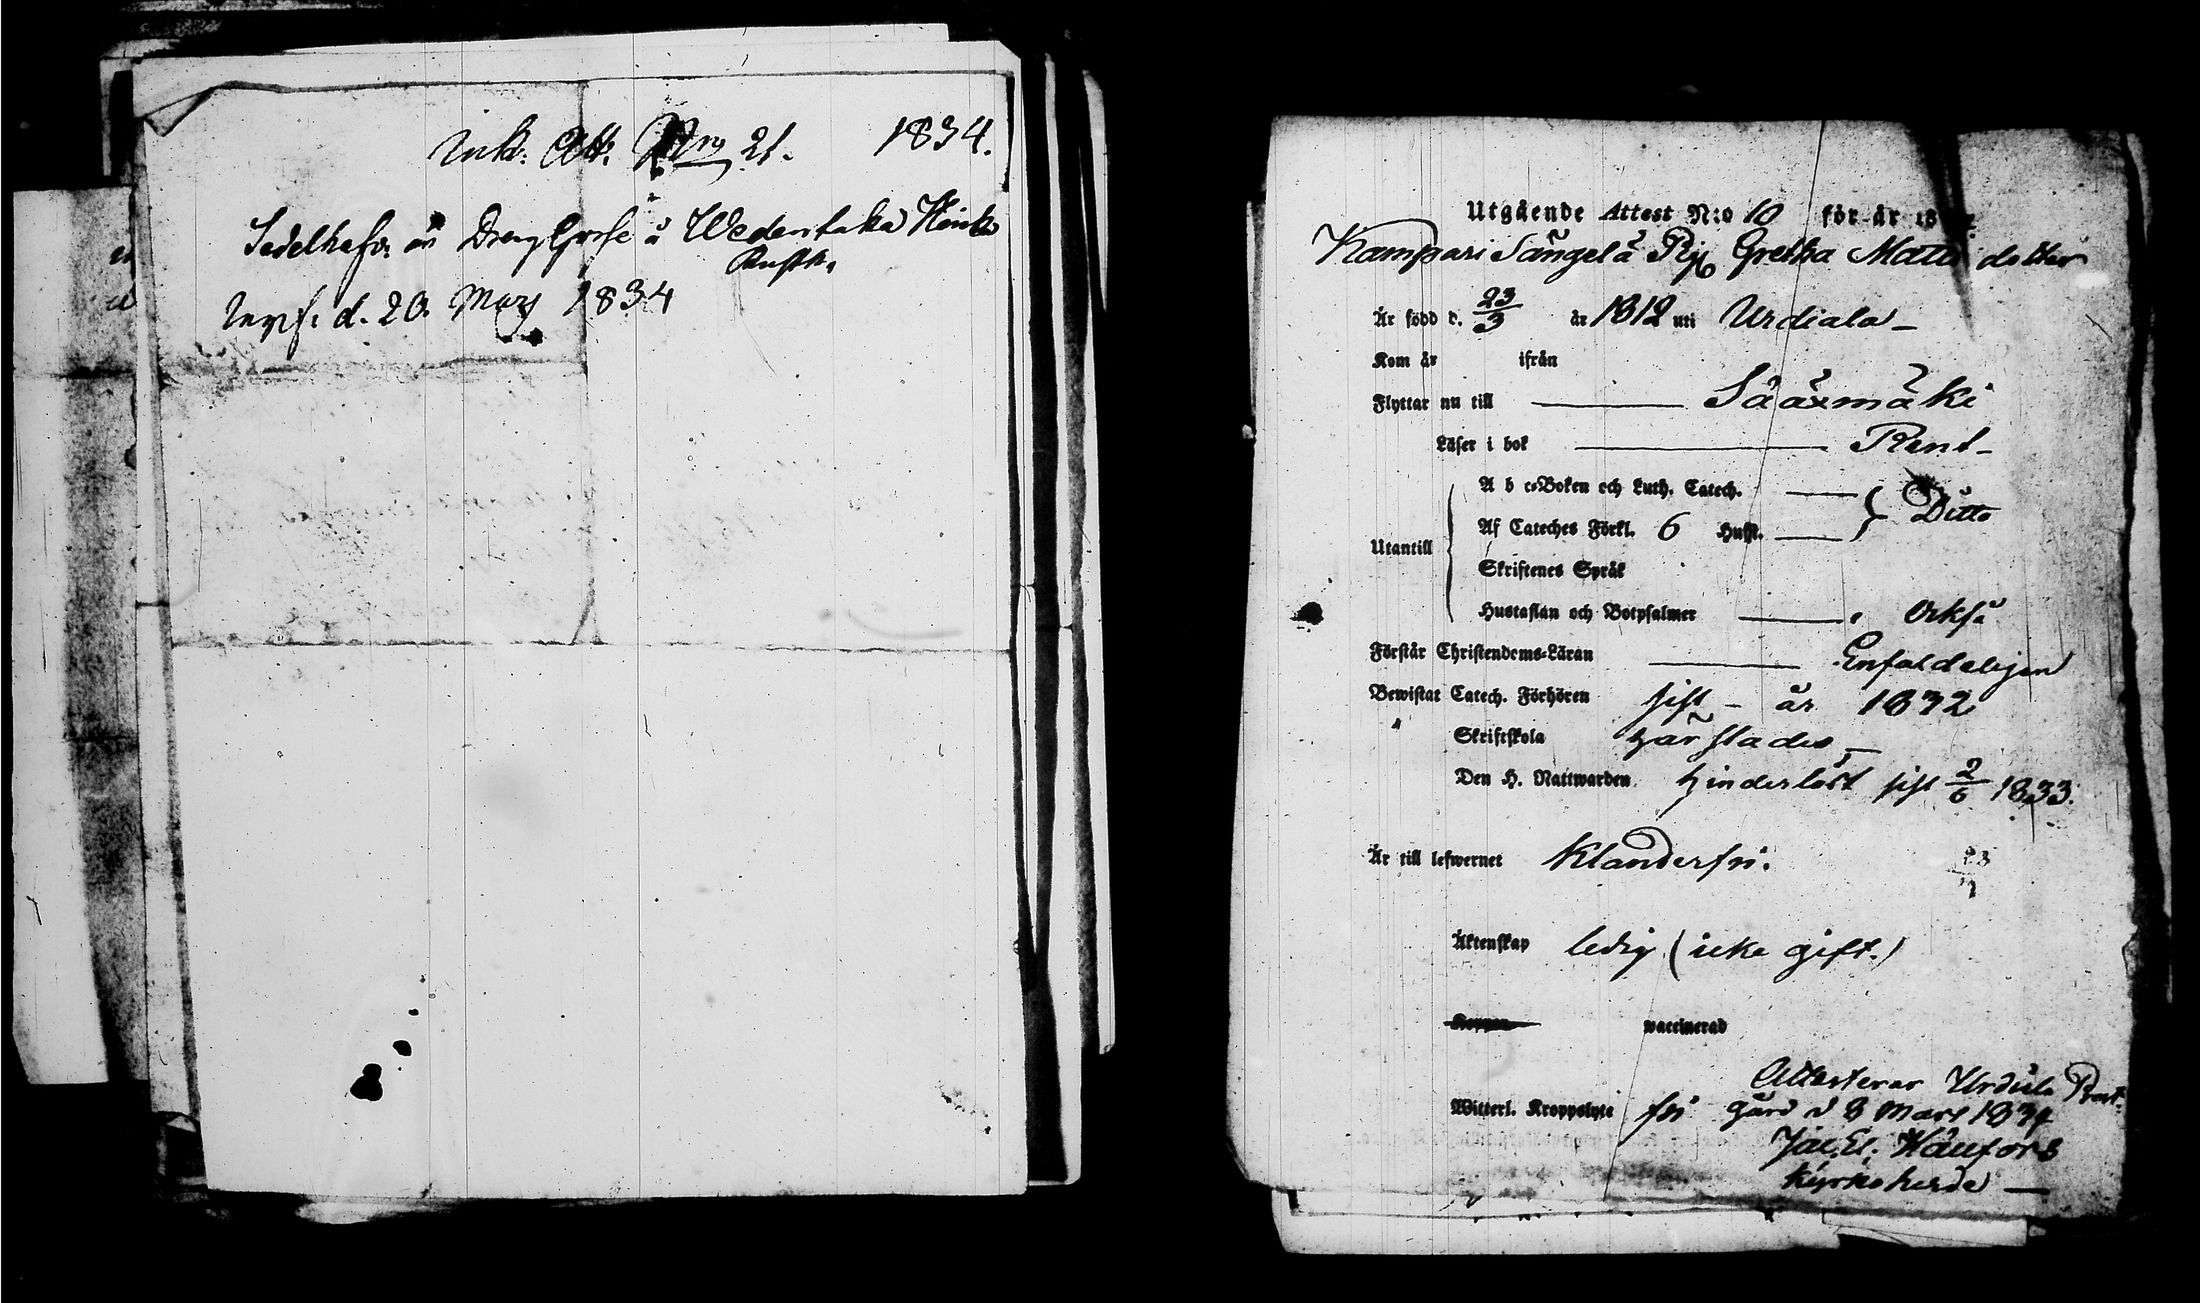 Ink: Att. Nro 21. 1834.
Sedelhafv. är Dreng å Wedentaka Heick
Rusth.
d. 20. Mars 1834
Utgående Attest N:o 10 för år 18
Kampari Sängelä Pig Gretha Matts dotter
Är född d. 23/3 år 1812 uti Urdiala –
Kom år ifrån
Flyttar nu till Sääxmäki
Läser i bok Rent –
A b c-Boken och Luth. Catech.
Ditto
Af Cateches Förkl. 6 Hufst.
Utantill
Skriftenes Språk
Hustaflan och Botpsalmer Också
Förstår Christendoms-Läran Enfaldeligen
Bewistat Catech. Förhören sist – år 1832
Skriftskola härstädes –
Den H. Nattwarden hinderlöst sist 2/6 1833.
Är till lefwernet Klanderfri.
Äktenskap ledig (icke gift.)
vaccinerad
Attesterar Urdiala Prest-
Witterl. Kroppslyte fri gård d 8 Mars 1834
Jac. El. Hällfors
Kyrkoherde –